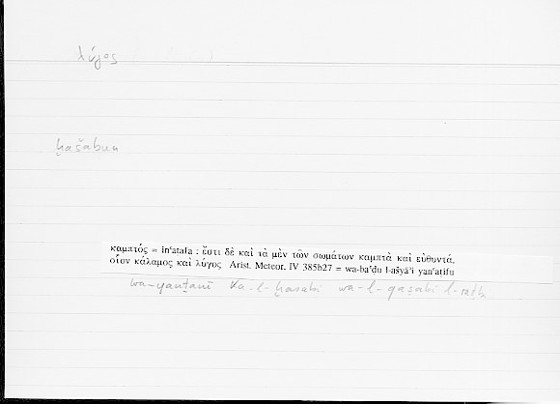 λύγος
ḫašabun
καμπτός = in'atafa : ἔστι δὲ καὶ τὰ μὲν τῶν σωμάτων καμπτὰ καὶ εὐθυντά,
οἷον κάλαμος καὶ λύγος Arist. Meteor. IV 385b27 = wa-ba'ḍu l-ašyā'i yan'aṭifu
wa-yanṯanī ka-l-ḫašabi wa-l-qaṣabi l-raṭb